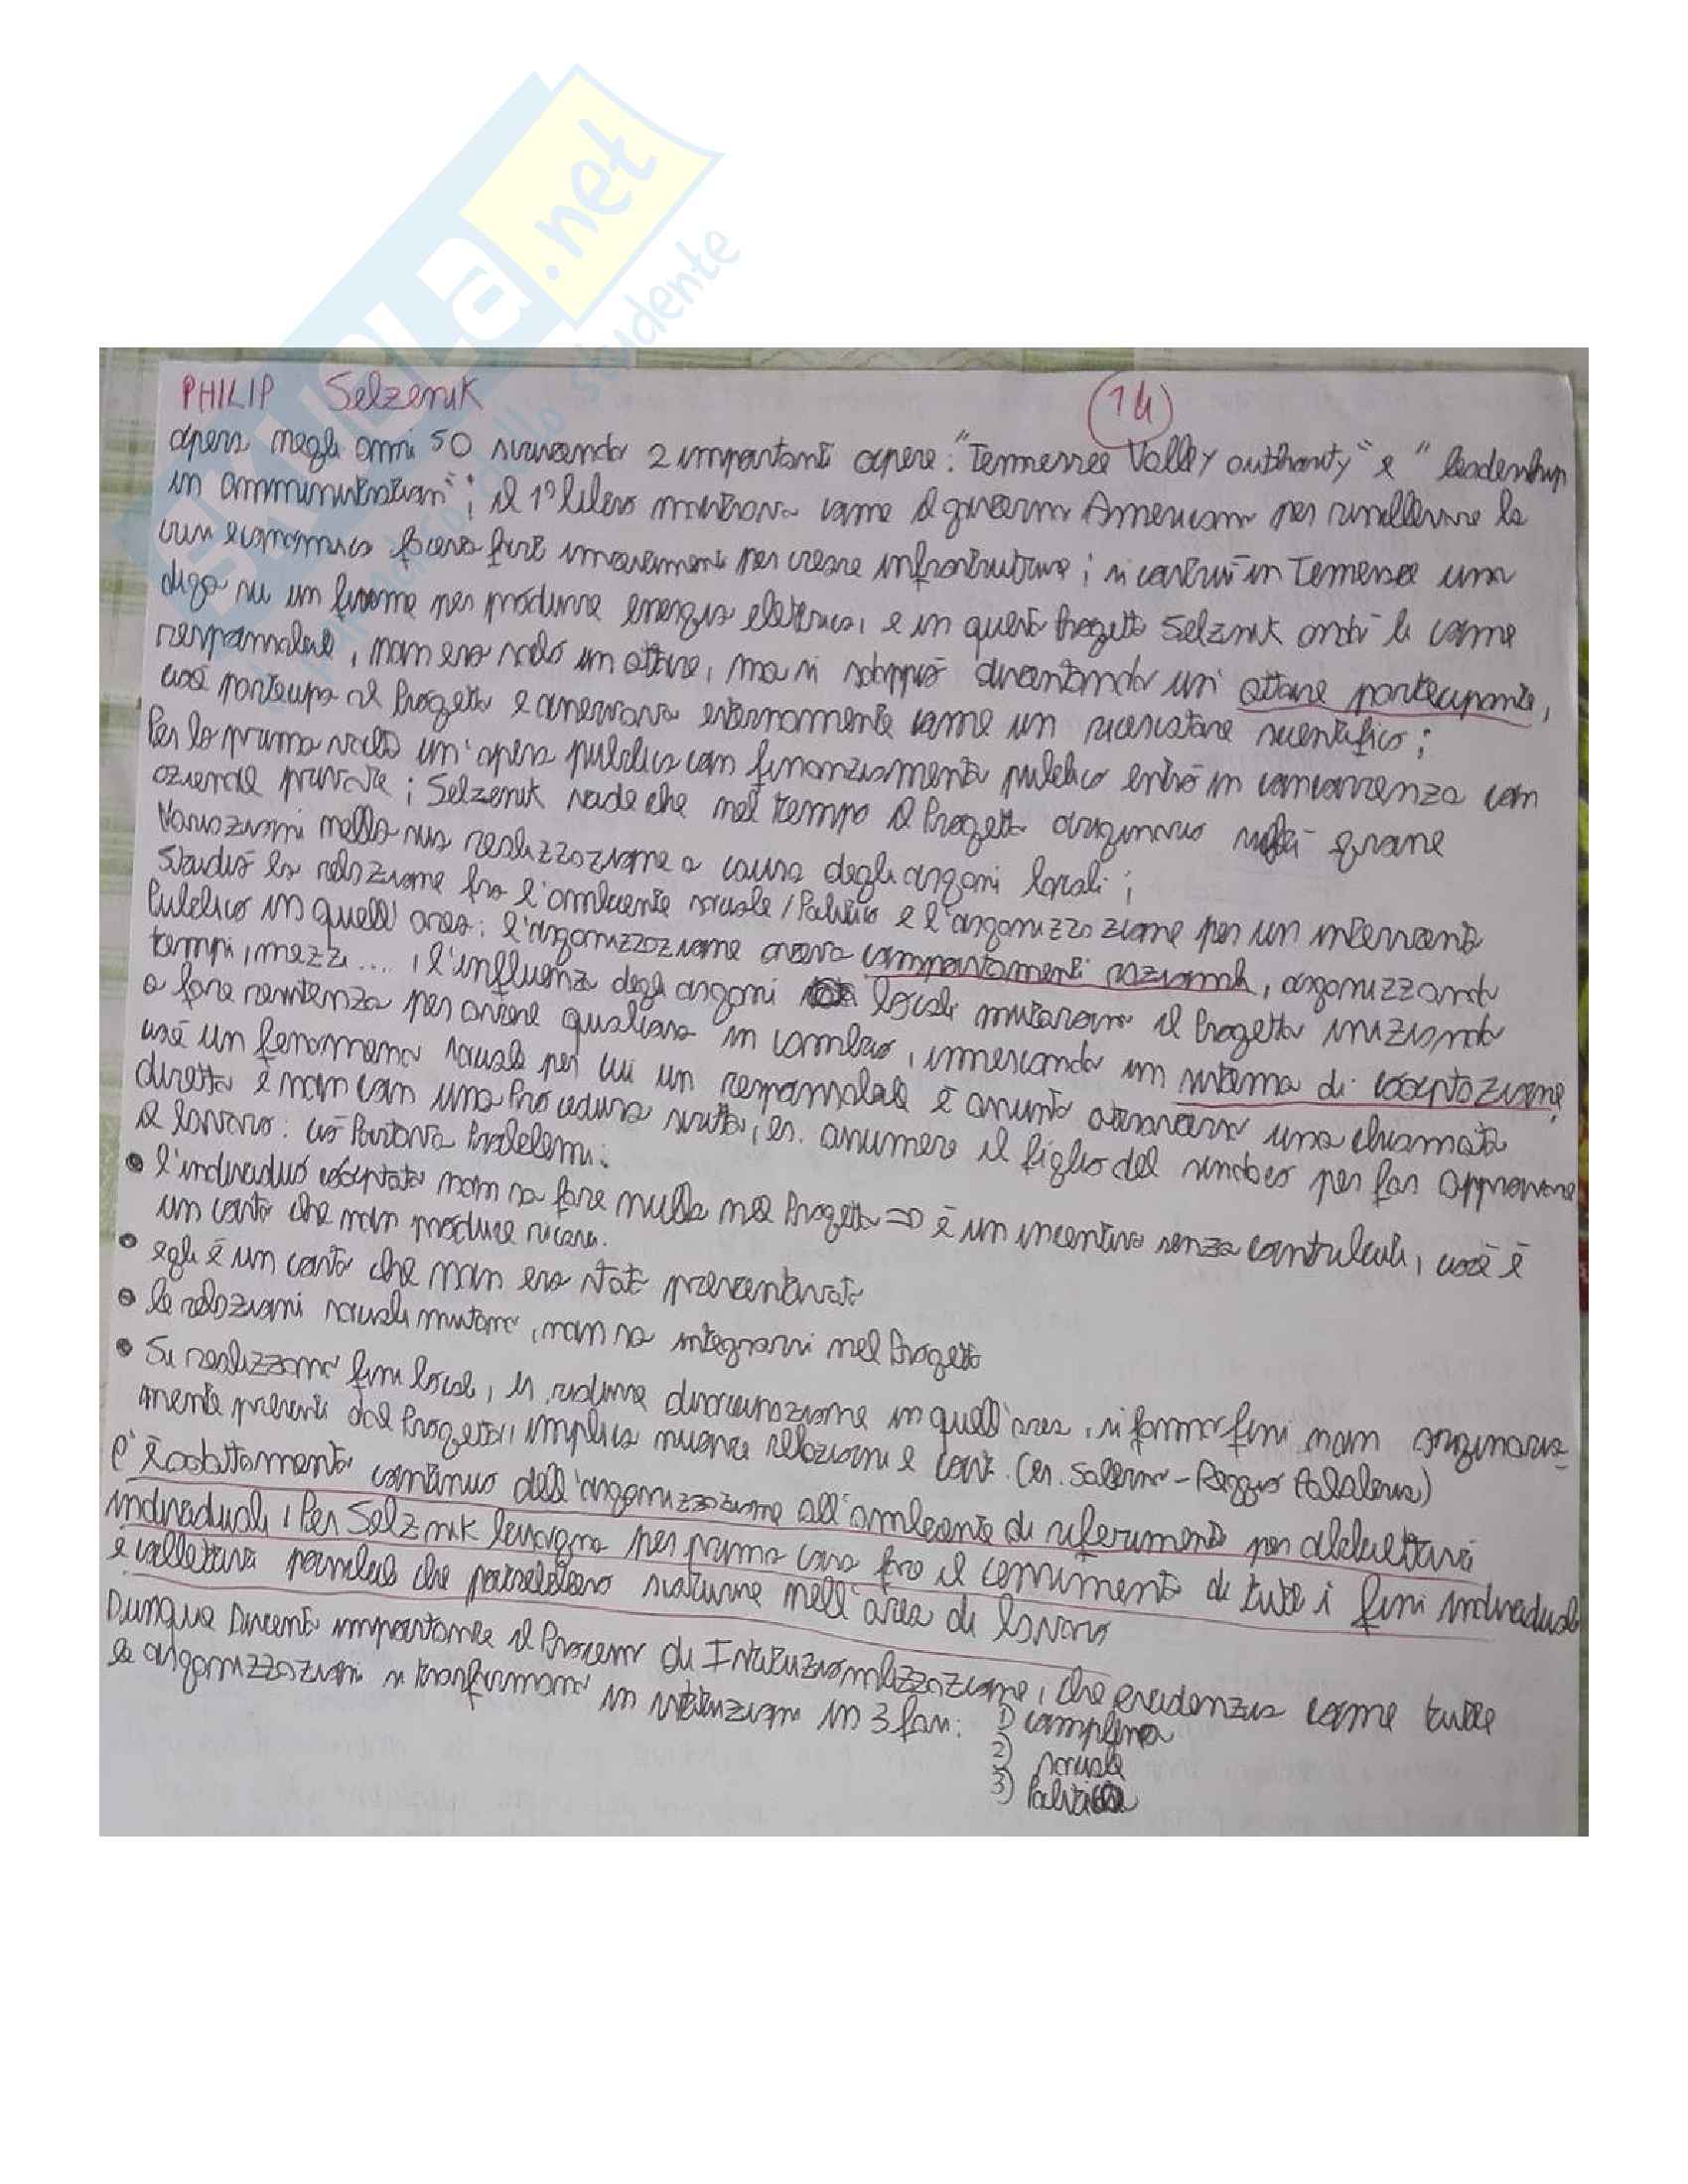 SKUOLA.net
dello studente
PHILIP Selzenik
14
opera negli anni 50 scrivendo 2 importanti opere: "Tennessee Valley authority" e "leadership
in amministration"; il 1° libro mostrava come il governo Americano per risollevare la
crisi economica faceva forti investimenti per creare infrastrutture; si costruì in Tennessee una
diga su un fiume per produrre energia elettrica, e in questo Progetto Selznik andò lì come
responsabile, non era solo un attore, ma si sdoppiò diventando un attore partecipante,
cioè partecipa al Progetto e osservava esternamente come un ricercatore scientifico;
Per la prima volta un'opera pubblica con finanziamento pubblico entrò in concorrenza con
aziende private; Selzenik vede che nel tempo il Progetto originario subì
Variazioni nella sua realizzazione a causa degli organi locali;
Studiò la relazione fra l'ambiente sociale/Politico e l'organizzazione per un intervento
Pubblico in quell'area: l'organizzazione aveva comportamenti razionali, organizzando
tempi, mezzi.... , l'influenza degli organi locali mutarono il Progetto iniziando
a fare resistenza per avere qualcosa in cambio, innescando un sistema di cooptazione,
cioè un fenomeno sociale per cui un responsabile è assunto attraverso una chiamata
diretta e non con una Procedura scritta, es. assumere il figlio del sindaco per far approvare
il lavoro: ciò Portava Problemi:
• l'individuo cooptato non sa fare nulla nel Progetto => è un incentivo senza contributi, cioè è
un costo che non produce ricavi.
• egli è un costo che non era stato preventivato
• le relazioni sociali mutano, non sa integrarsi nel Progetto
• Si realizzano fini locali, es. ridurre disoccupazione in quell'area, si formano fini non originaria-
mente previsti dal Progetto, implica nuove relazioni e costi. (es. Salerno - Reggio Calabria)
l'è adattamento continuo dell'organizzazione all'ambiente di riferimento per obbiettivi
individuali, Per Selznik bisogna per prima cosa fare il censimento di tutti i fini individuali
e collettivi possibili che potrebbero scaturire nell'area di lavoro
Dunque Diventa importante il Processo di Istituzionalizzazione, che evidenzia come tutte
le organizzazioni si trasformano in istituzioni in 3 fasi: 1) complessa
2) sociale
3) Politica